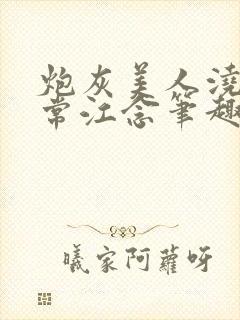 炮灰美人浇
常江念笔趣
曦家阿萝呀